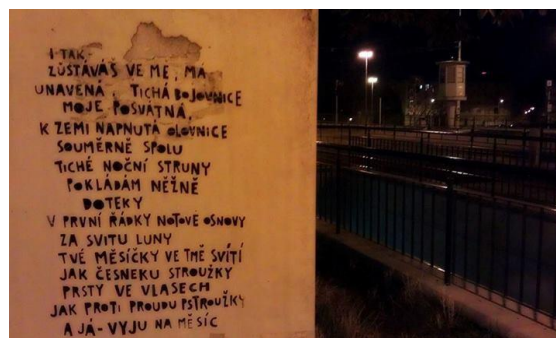 I TAK
ZŮSTÁVÁŠ VE MĚ, MÁ
UNAVENÁ TICHÁ BOJOVNICE
MOJE POSVÁTNÁ,
K ZEMI NAPNUTÁ OLOVNICE
SOUMĚRNĚ SPOLU
TICHÉ NOČNÍ STRUNY
POKLÁDÁM NĚŽNĚ
DOTEKY
V PRVNÍ ŘÁDKY NOTOVÉ OSNOVY
ZA SVITU LUNY
TVÉ MĚSÍČKY VE TMĚ SVÍTÍ
JAK ČESNEKU STROUŽKY
PRSTY VE VLASECH
JAK PROTI PROUDU PSTROUŽKY
A JÁ - VYJU NA MĚSÍC